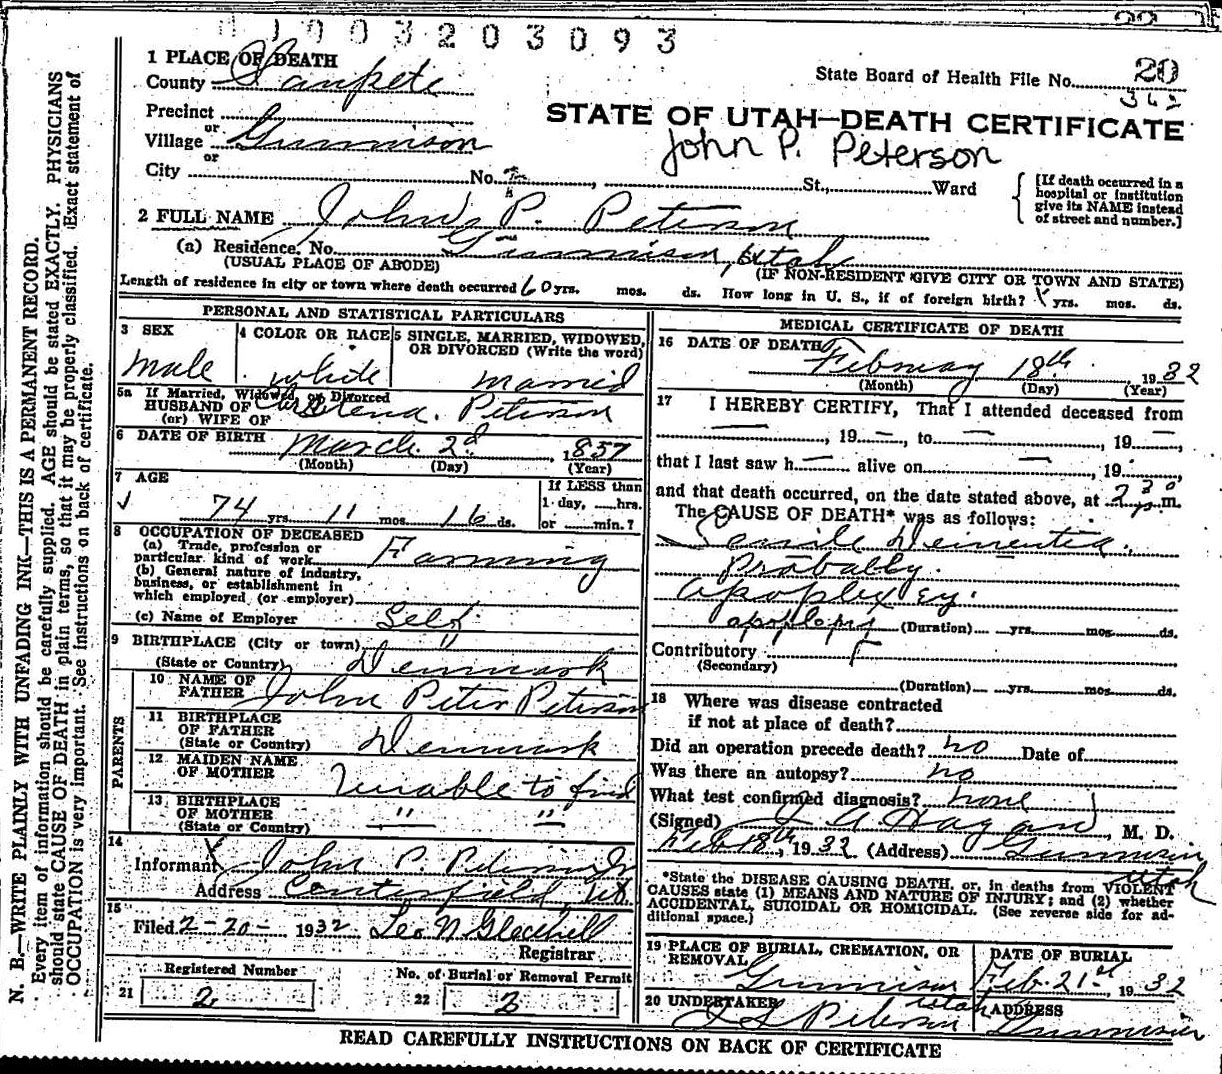 1003203093
1 PLACE OF DEATH
County Sanpete
State Board of Health File No. 20
362
STATE OF UTAH—DEATH CERTIFICATE
John P. Peterson
Precinct
or
Village Gunnison
or
City No. St., Ward
[If death occurred in a hospital or institution give its NAME instead of street and number.]
2 FULL NAME John P. Peterson
(a) Residence, No. Gunnison, Utah
(USUAL PLACE OF ABODE) (IF NON-RESIDENT GIVE CITY OR TOWN AND STATE)
Length of residence in city or town where death occurred 60 yrs. mos. ds. How long in U. S., if of foreign birth? yrs. mos. ds.
PERSONAL AND STATISTICAL PARTICULARS
3 SEX
male
4 COLOR OR RACE
white
5 SINGLE, MARRIED, WIDOWED, OR DIVORCED (Write the word)
married
5a If Married, Widowed, or Divorced
HUSBAND OF Peterson
(or) WIFE OF
6 DATE OF BIRTH March 2d, 1857
(Month) (Day) (Year)
7 AGE
74 yrs. 11 mos. 16 ds.
If LESS than
1 day, hrs.
or min.?
8 OCCUPATION OF DECEASED
(a) Trade, profession or
particular kind of work Farming
(b) General nature of industry,
business, or establishment in
which employed (or employer)
(c) Name of Employer Self
9 BIRTHPLACE (City or town) "
(State or Country) Denmark
PARENTS
10 NAME OF
FATHER John Peter Peterson
11 BIRTHPLACE
OF FATHER
(State or Country) Denmark
12 MAIDEN NAME
OF MOTHER Unable to find
13 BIRTHPLACE
OF MOTHER
(State or Country) " "
14
Informant John P. Peterson Jr
Address Centerfield, Ut.
15
Filed 2-20- 1932 Leo N Gledhill
Registrar
Registered Number
21 2
No. of Burial or Removal Permit
22 3
MEDICAL CERTIFICATE OF DEATH
16 DATE OF DEATH
February 18th 1932
(Month) (Day) (Year)
17 I HEREBY CERTIFY, That I attended deceased from
—, 19 —, to —, 19 —,
that I last saw h — alive on —, 19
and that death occurred, on the date stated above, at 2 30 p. m.
The CAUSE OF DEATH* was as follows:
Senile Dementia.
Probally.
Apoplexey.
apoplexy (Duration) yrs. mos. ds.
Contributory
(Secondary)
(Duration) yrs. mos. ds.
18 Where was disease contracted
if not at place of death?
Did an operation precede death? no Date of
Was there an autopsy? no
What test confirmed diagnosis? none
(Signed) Hagan, M. D.
Feb 18th, 1932 (Address) Gunnison
Utah
*State the DISEASE CAUSING DEATH, or, in deaths from VIOLENT
CAUSES state (1) MEANS AND NATURE OF INJURY; and (2) whether
ACCIDENTAL, SUICIDAL OR HOMICIDAL. (See reverse side for ad-
ditional space.)
19 PLACE OF BURIAL, CREMATION, OR
REMOVAL
Gunnison
Utah
DATE OF BURIAL
Feb. 21st, 1932
20 UNDERTAKER
Peterson
ADDRESS
Gunnison
READ CAREFULLY INSTRUCTIONS ON BACK OF CERTIFICATE
N. B.—WRITE PLAINLY WITH UNFADING INK—THIS IS A PERMANENT RECORD.
Every item of information should be carefully supplied. AGE should be stated EXACTLY. PHYSICIANS
should state CAUSE OF DEATH in plain terms, so that it may be properly classified. Exact statement of
OCCUPATION is very important. See instructions on back of certificate.